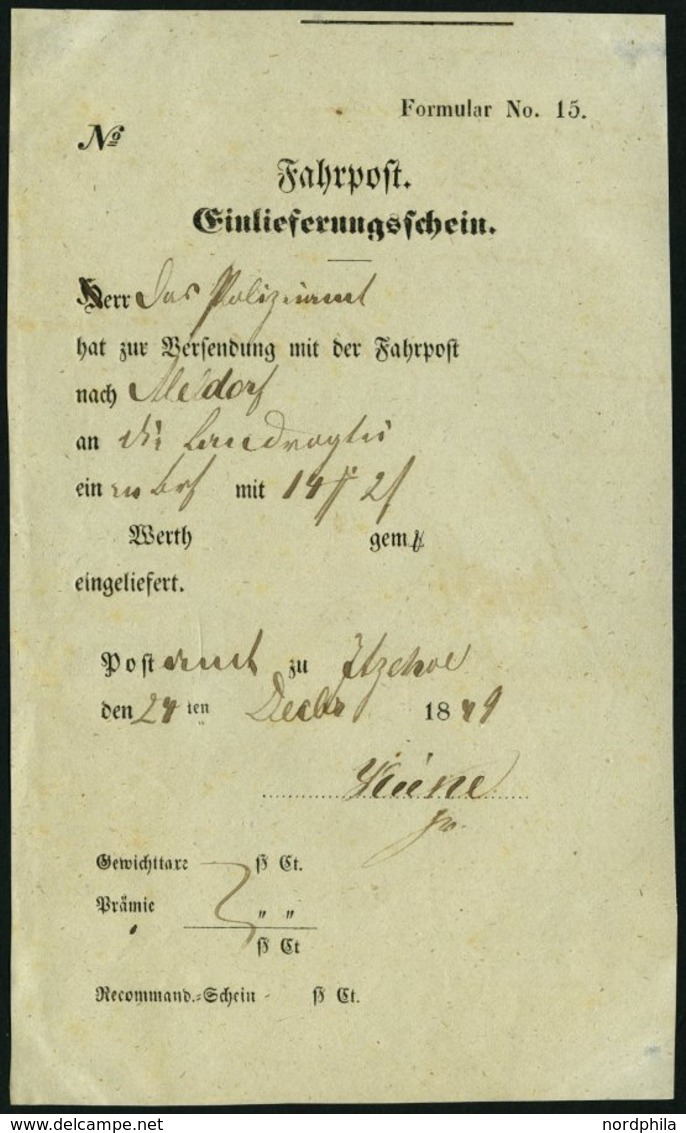 Formular No. 15.
No
Fahrpost.
Einlieferungsschein.
Herr Das Polizeiamt
hat zur Versendung mit der Fahrpost
nach Meldorf
an die Landvogtei
ein mit 14 2
Werth gem
eingeliefert.
Postamt zu Itzehoe
den 24 ten Decbr 1849
Gewichttaxe ß Ct.
Prämie " "
ß Ct
Recommand.-Schein - ß Ct.
nordphila